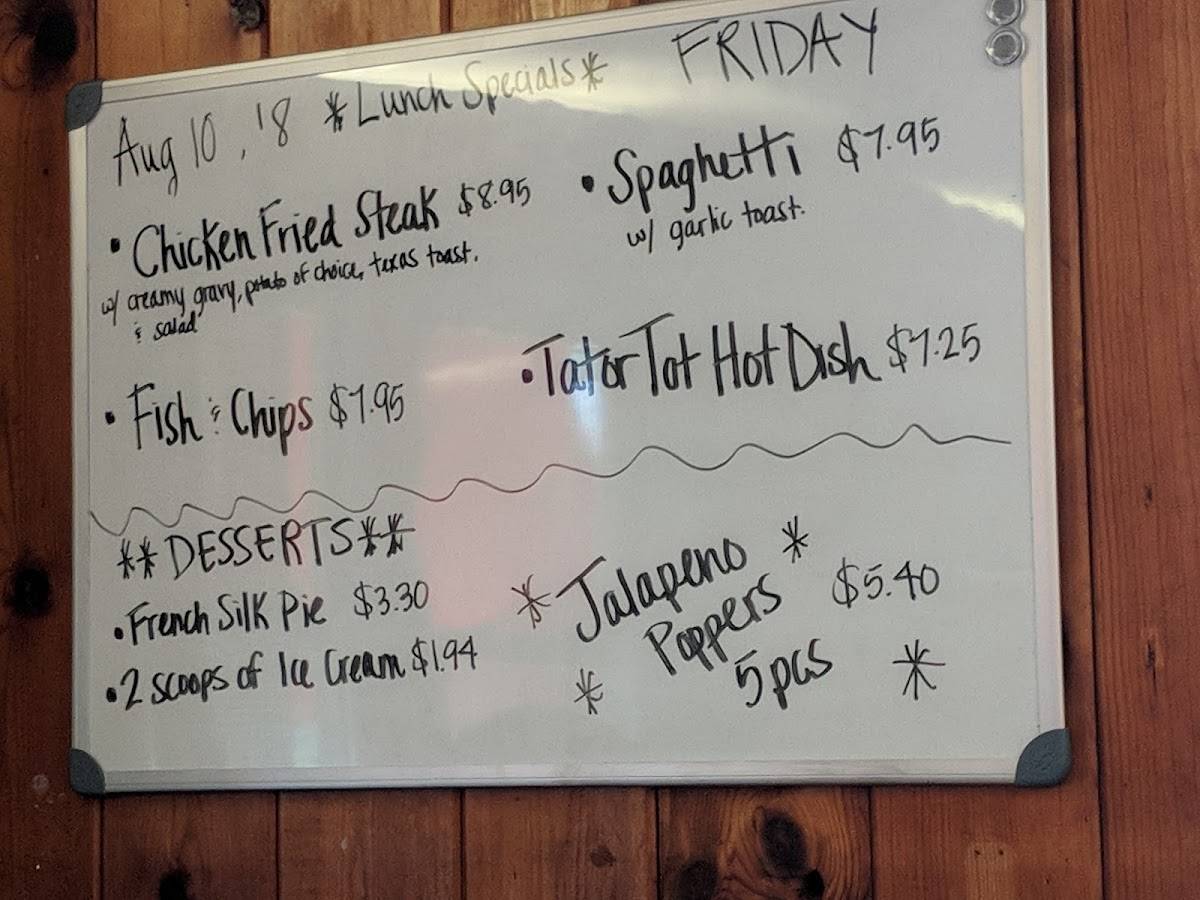 Aug 10, '8 *Lunch Specials* FRIDAY
• Chicken Fried Steak $8.95
w/ creamy gravy, potato of choice, texas toast.
& salad
• Spaghetti $7.95
w/ garlic toast.
• Fish & Chips $7.95
• Tator Tot Hot Dish $7.25
**DESSERTS**
• French Silk Pie $3.30
• 2 scoops of Ice Cream $1.94
* Jalapeno *
Poppers $5.40
* 5 pcs *